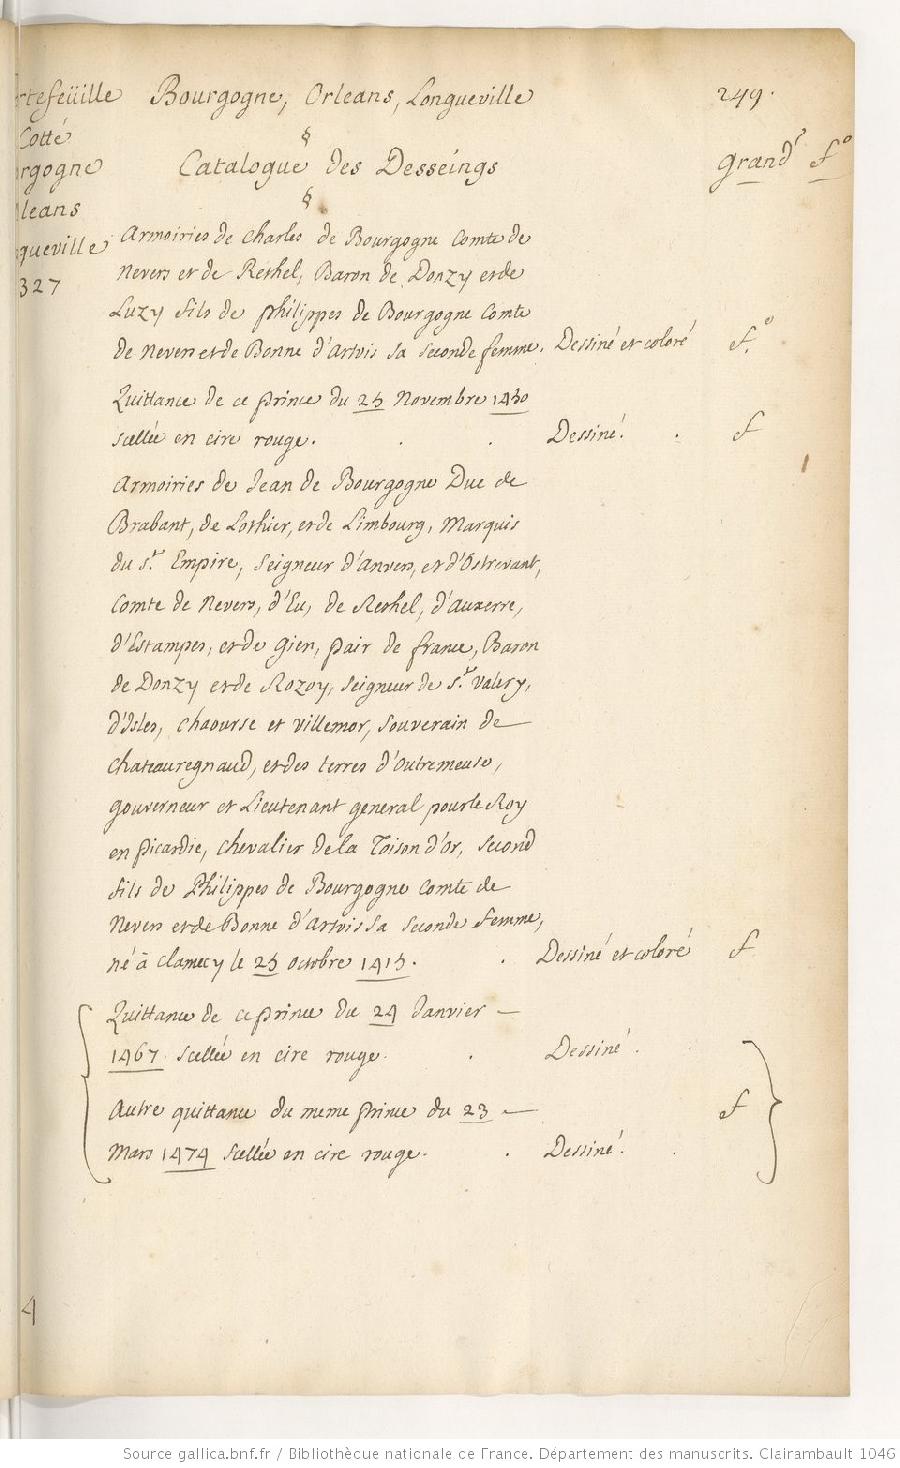 rtefeüille Bourgogne, Orleans, Longueville 249.
Cotté §
rgogne Catalogue des Desseings Grand.r f.o
leans §
gueville
327
Armoiries de Charles de Bourgogne Comte de
Nevers et de Rethel, Baron de Donzy et de
Luzy fils de Philippes de Bourgogne Comte
de Nevers et de Bonne d'Artois sa seconde femme. Dessiné et coloré f.o
Quittance de ce Prince du 25 Novembre 1430
scellée en cire rouge. . . Dessiné. . f
Armoiries de Jean de Bourgogne Duc de
Brabant, de Lothier, et de Limbourg, Marquis
du S.t Empire, Seigneur d'Anvers, et d'Ostrevant,
Comte de Nevers, d'Eu, de Rethel, d'Auxerre,
d'Estampes, et de Gien, Pair de france, Baron
de Donzy et de Rozoy, Seigneur de S.t Valery,
d'Isles, Chaourse et Villemor, Souverain de
Chateauregnaud, et des terres d'Outremeuse,
Gouverneur et Lieutenant general pour le Roy
en Picardie, Chevalier de la Toison d'Or, Second
fils de Philippes de Bourgogne Comte de
Nevers et de Bonne d'Artois sa seconde femme,
né à Clamecy le 25 octobre 1415. . Dessiné et coloré f
Quittance de ce Prince du 24 Janvier
1467 scellée en cire rouge. . Dessiné.
Autre quittance du meme Prince du 23 f
Mars 1474 scellée en cire rouge. . Dessiné.
4
Source gallica.bnf.fr / Bibliothèque nationale de France. Département des manuscrits. Clairambault 1046